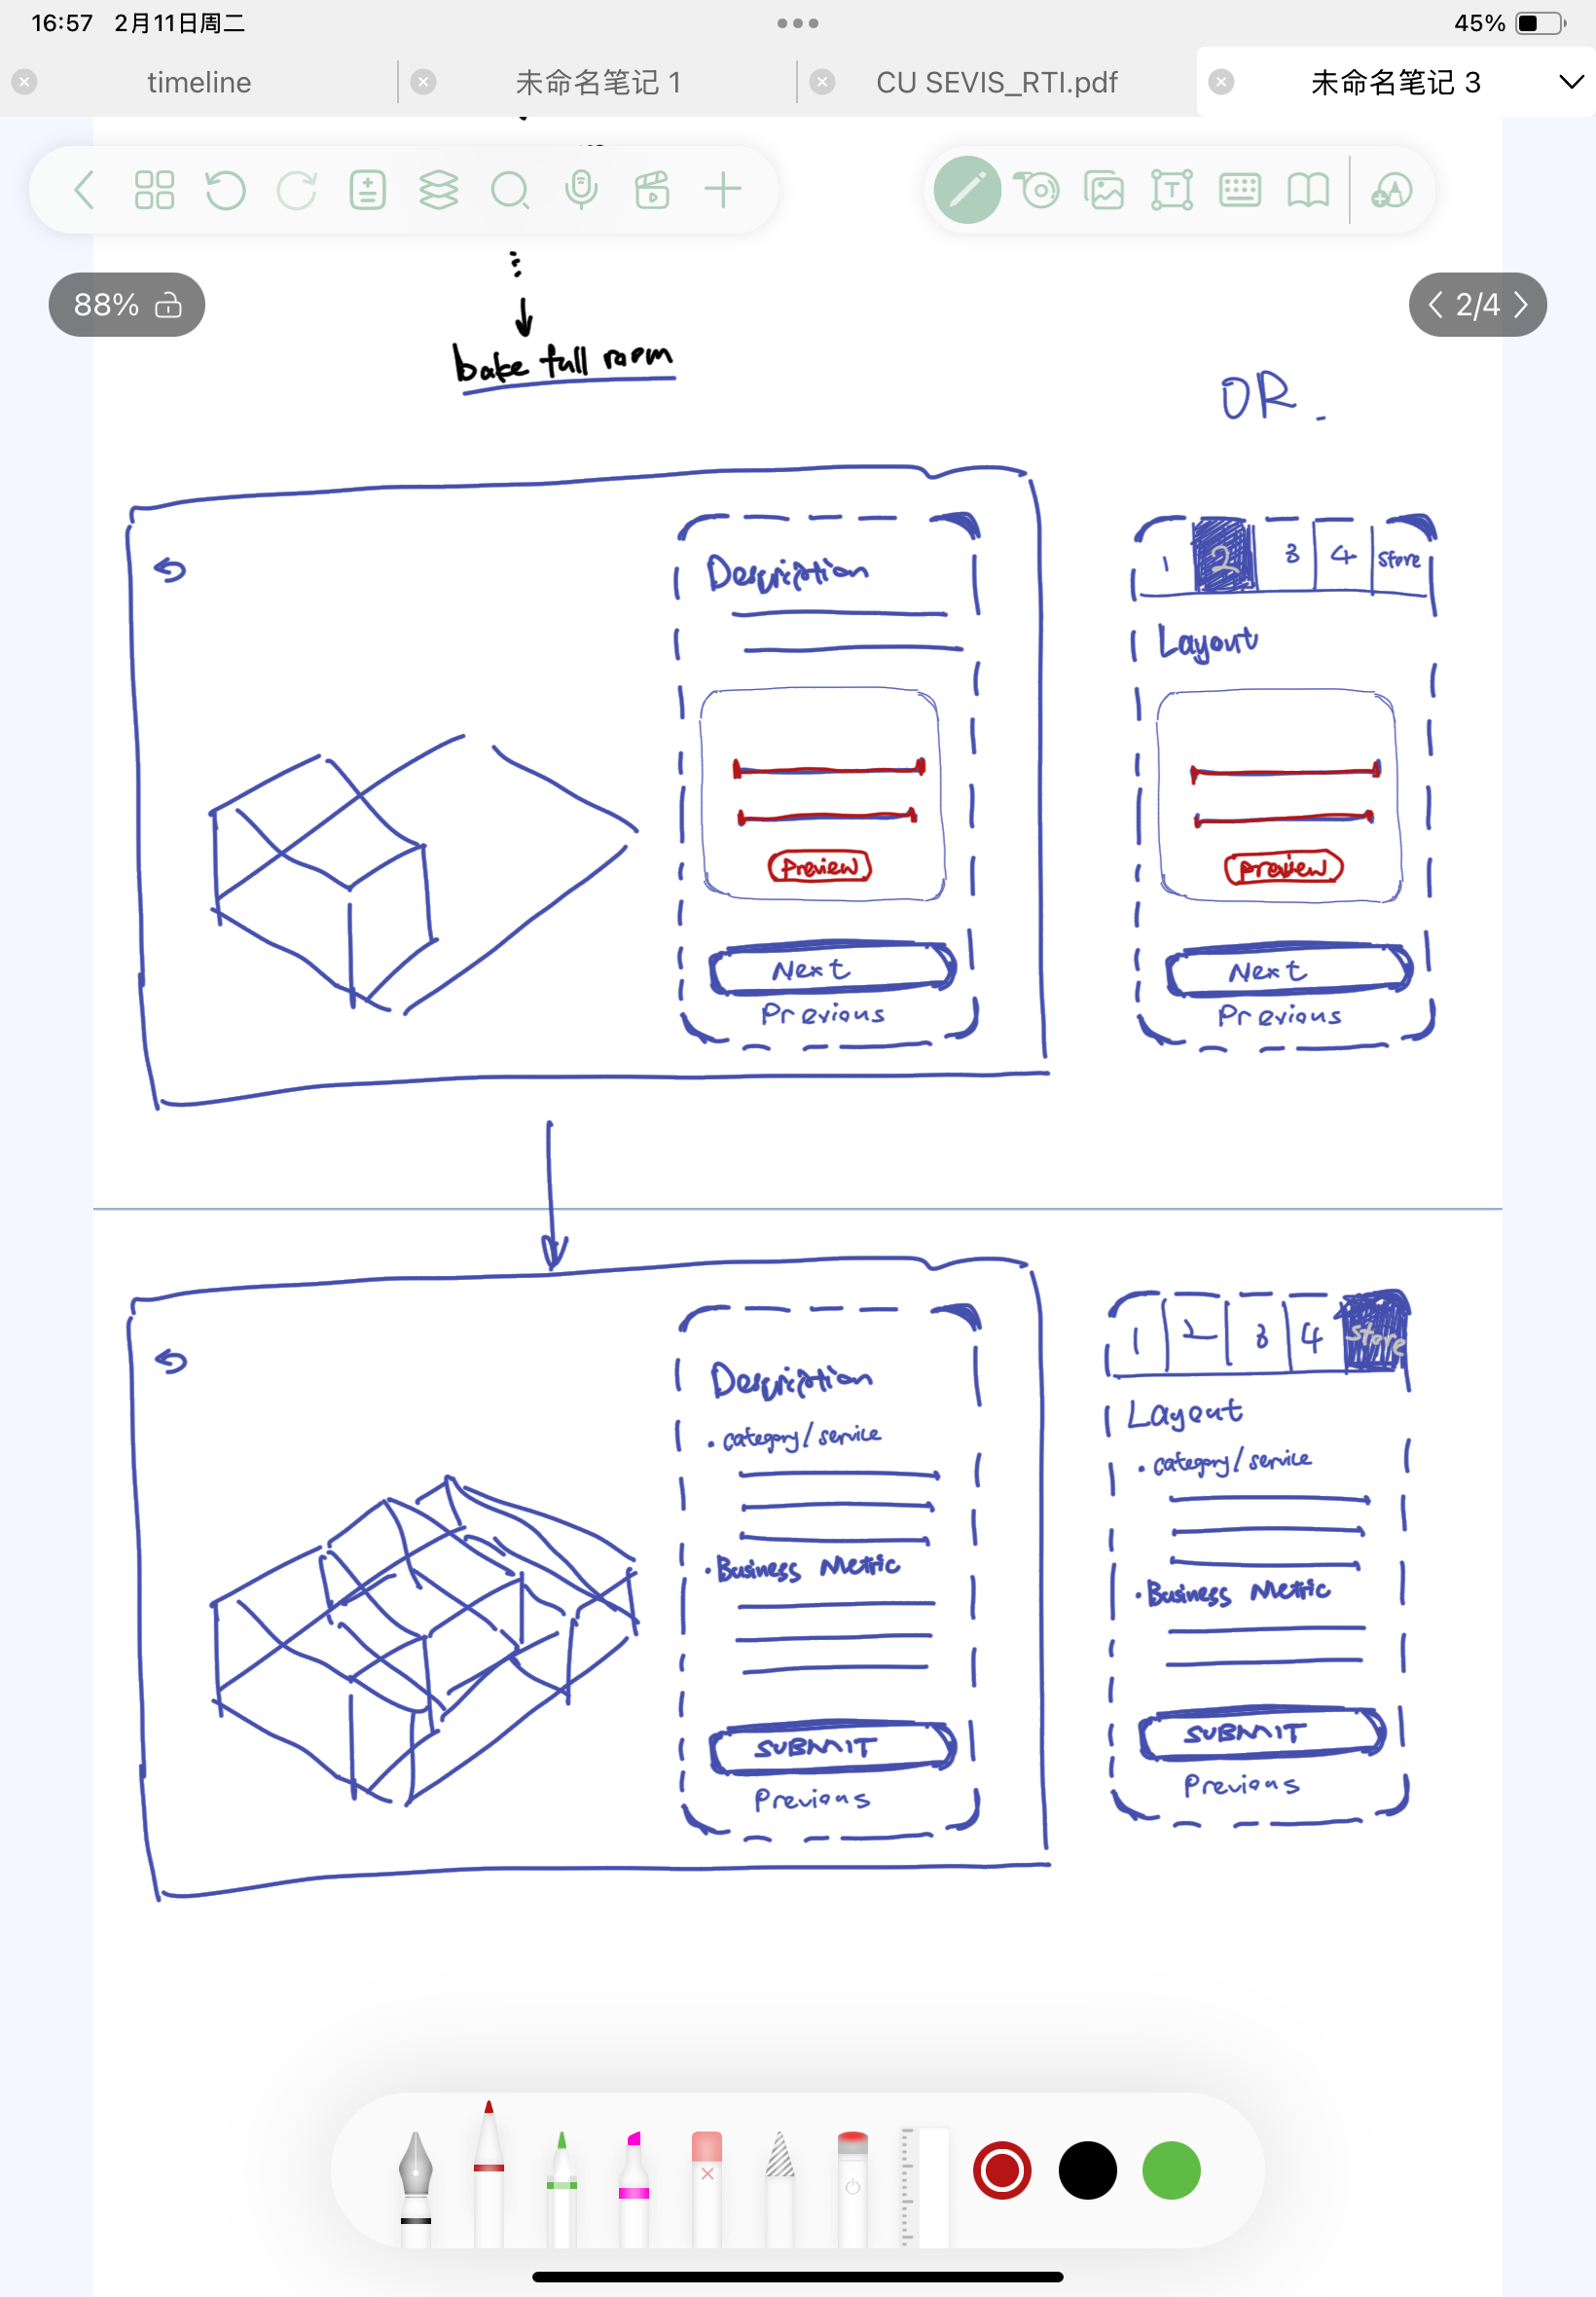 16:57 2月11日周二
45%
timeline
未命名笔记 1
CU SEVIS_RTI.pdf
未命名笔记 3
88%
2/4
bake full room
OR.
Description
Preview
Next
Previous
1 2 3 4 store
Layout
Preview
Next
Previous
Description
• category/service
• Business Metric
SUBMIT
Previous
1 2 3 4 store
Layout
• category/service
• Business Metric
SUBMIT
Previous